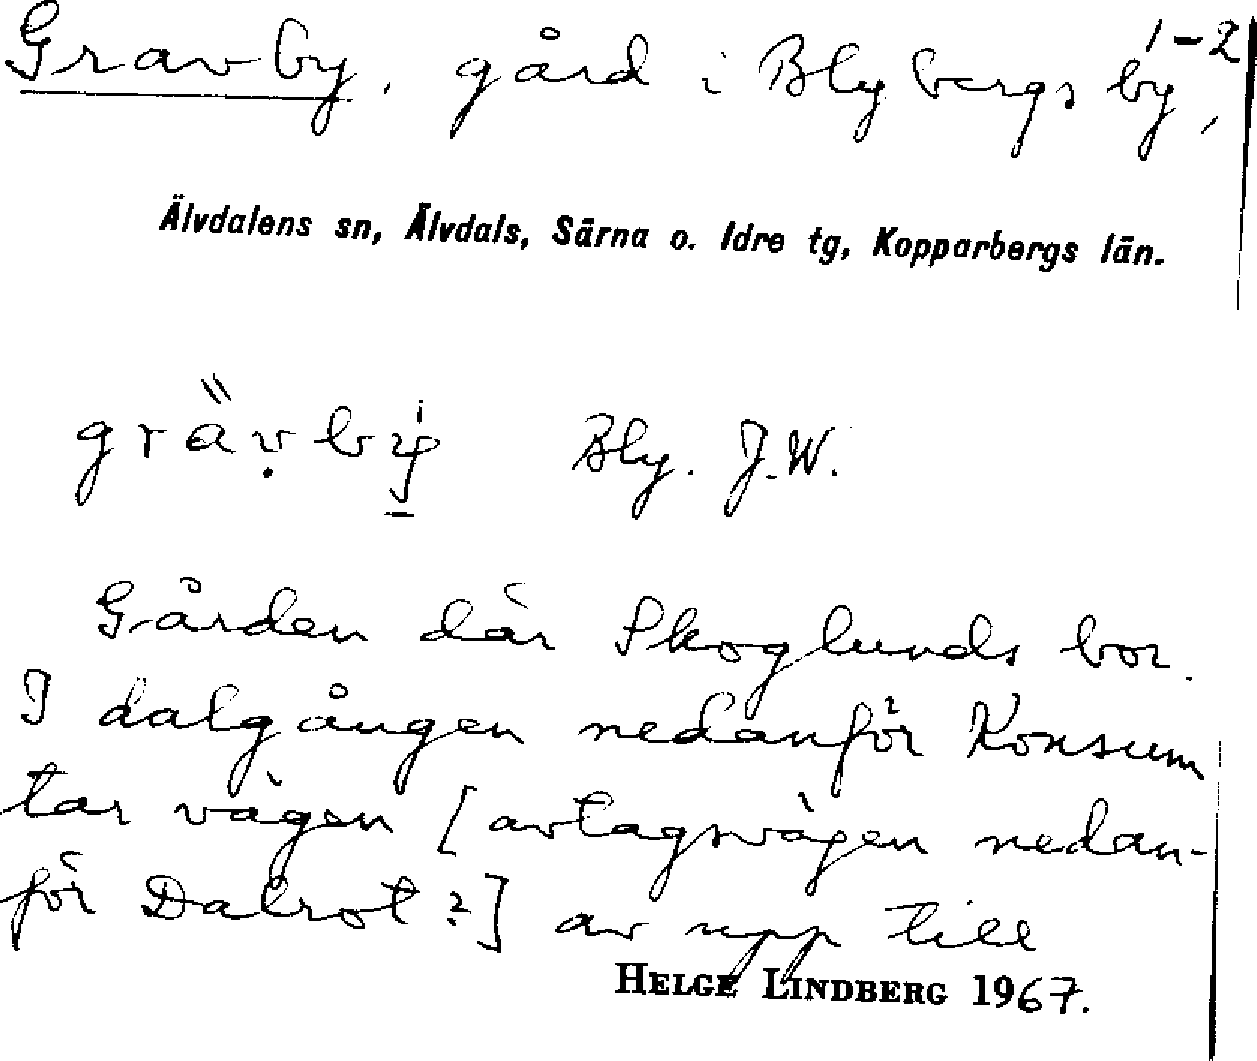 1-2
Gravby, gård i Blybergs by,
Älvdalens sn, Älvdals, Särna o. Idre tg, Kopparbergs län.
grävby Bly. J.W.
Gården där Skoglunds bor.
I dalgången nedanför Konsum
tar vägen [avtagsvägen nedan-
för Dalrot?] av upp till
HELGE LINDBERG 1967.